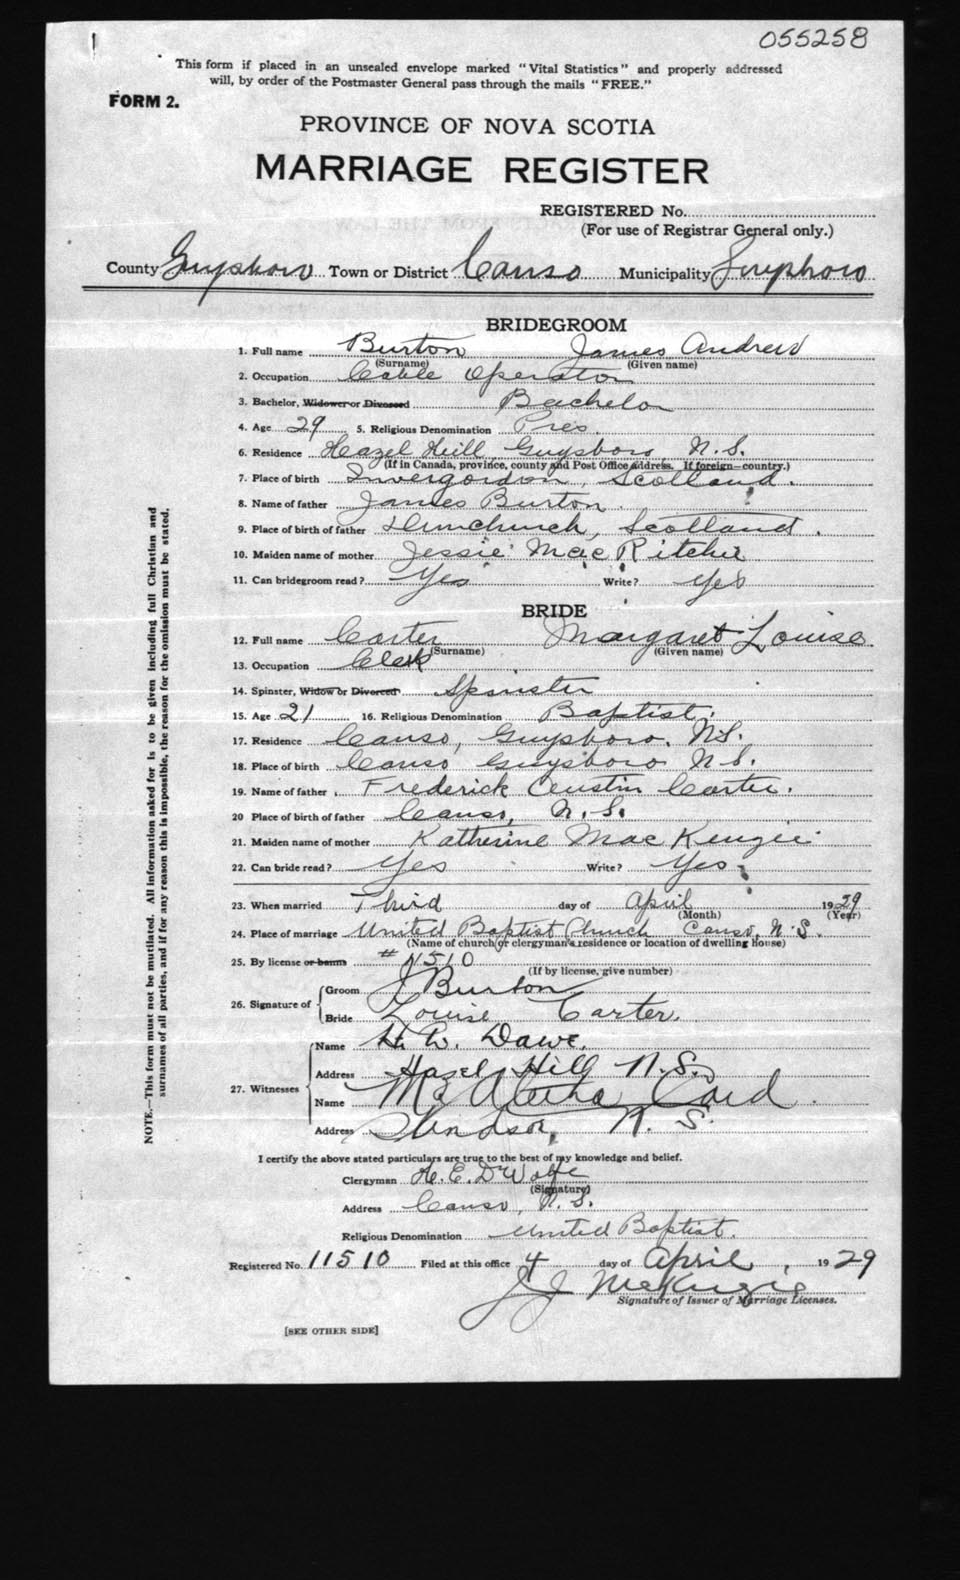 055258
This form if placed in an unsealed envelope marked "Vital Statistics" and properly addressed
will, by order of the Postmaster General pass through the mails "FREE."
FORM 2.
PROVINCE OF NOVA SCOTIA
MARRIAGE REGISTER
REGISTERED No.
(For use of Registrar General only.)
County Guysboro Town or District Canso Municipality Guysboro
BRIDEGROOM
1. Full name Burton James Andrew
(Surname) (Given name)
2. Occupation Cable Operator
3. Bachelor, Widower or Divorced Bachelor
4. Age 29 5. Religious Denomination Pres.
6. Residence Hazel Hill, Guysboro, N.S.
(If in Canada, province, county and Post Office address. If foreign—country.)
7. Place of birth Invergordon, Scotland.
8. Name of father James Burton.
9. Place of birth of father Scotland.
10. Maiden name of mother Jessie MacRitchie
11. Can bridegroom read? Yes Write? Yes
BRIDE
12. Full name Carter Margaret Louise
(Surname) (Given name)
13. Occupation Clerk
14. Spinster, Widow or Divorced Spinster
15. Age 21 16. Religious Denomination Baptist.
17. Residence Canso, Guysboro, N.S.
18. Place of birth Canso Guysboro N.S.
19. Name of father Frederick Austin Carter.
20 Place of birth of father Canso, N.S.
21. Maiden name of mother Katherine MacKenzie
22. Can bride read? Yes Write? Yes
23. When married Third day of April 1929
(Month) (Year)
24. Place of marriage United Baptist Church Canso, N.S.
(Name of church or clergyman's residence or location of dwelling house)
25. By license or banns # 11510
(If by license, give number)
26. Signature of Groom J Burton
Bride Louise Carter.
27. Witnesses Name H. W. Dawe.
Address Hazel Hill N.S.
Name Aletha Card.
Address Windsor, N.S.
I certify the above stated particulars are true to the best of my knowledge and belief.
Clergyman H. E. DeWolfe
(Signature)
Address Canso, N.S.
Religious Denomination United Baptist.
Registered No. 11510 Filed at this office 4 day of April, 1929
J J McKenzie
Signature of Issuer of Marriage Licenses.
[SEE OTHER SIDE]
NOTE.—This form must not be mutilated. All information asked for is to be given including full Christian and
surnames of all parties, and if for any reason this is impossible, the reason for the omission must be stated.